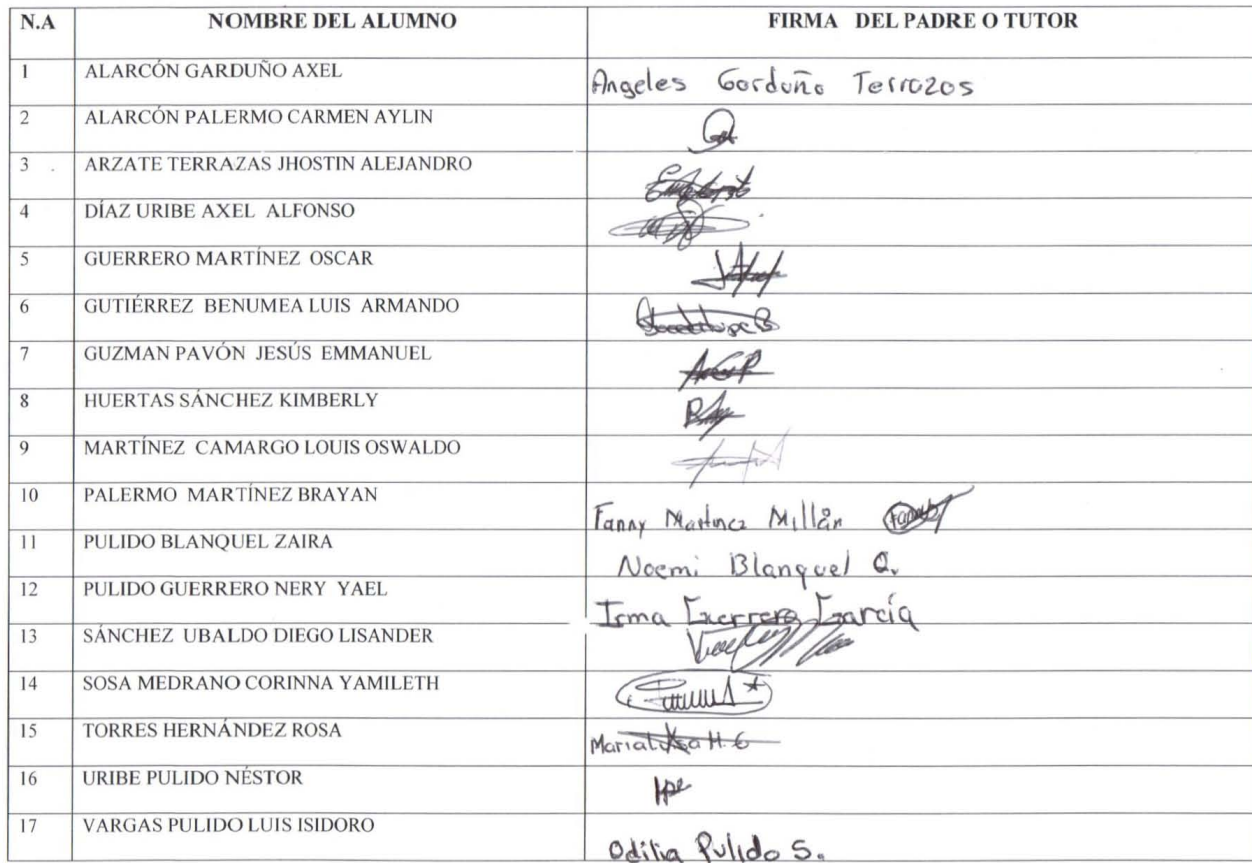 N.A NOMBRE DEL ALUMNO FIRMA DEL PADRE O TUTOR
1 ALARCÓN GARDUÑO AXEL Angeles Garduño Terrazas
2 ALARCÓN PALERMO CARMEN AYLIN
3 ARZATE TERRAZAS JHOSTIN ALEJANDRO
4 DÍAZ URIBE AXEL ALFONSO
5 GUERRERO MARTÍNEZ OSCAR
6 GUTIÉRREZ BENUMEA LUIS ARMANDO
7 GUZMAN PAVÓN JESÚS EMMANUEL
8 HUERTAS SÁNCHEZ KIMBERLY
9 MARTÍNEZ CAMARGO LOUIS OSWALDO
10 PALERMO MARTÍNEZ BRAYAN Fanny Martinez Millán
11 PULIDO BLANQUEL ZAIRA Noemi Blanquel Q.
12 PULIDO GUERRERO NERY YAEL Irma Guerrero García
13 SÁNCHEZ UBALDO DIEGO LISANDER
14 SOSA MEDRANO CORINNA YAMILETH
15 TORRES HERNÁNDEZ ROSA Maria Luisa H. G
16 URIBE PULIDO NÉSTOR
17 VARGAS PULIDO LUIS ISIDORO Odilia Pulido S.